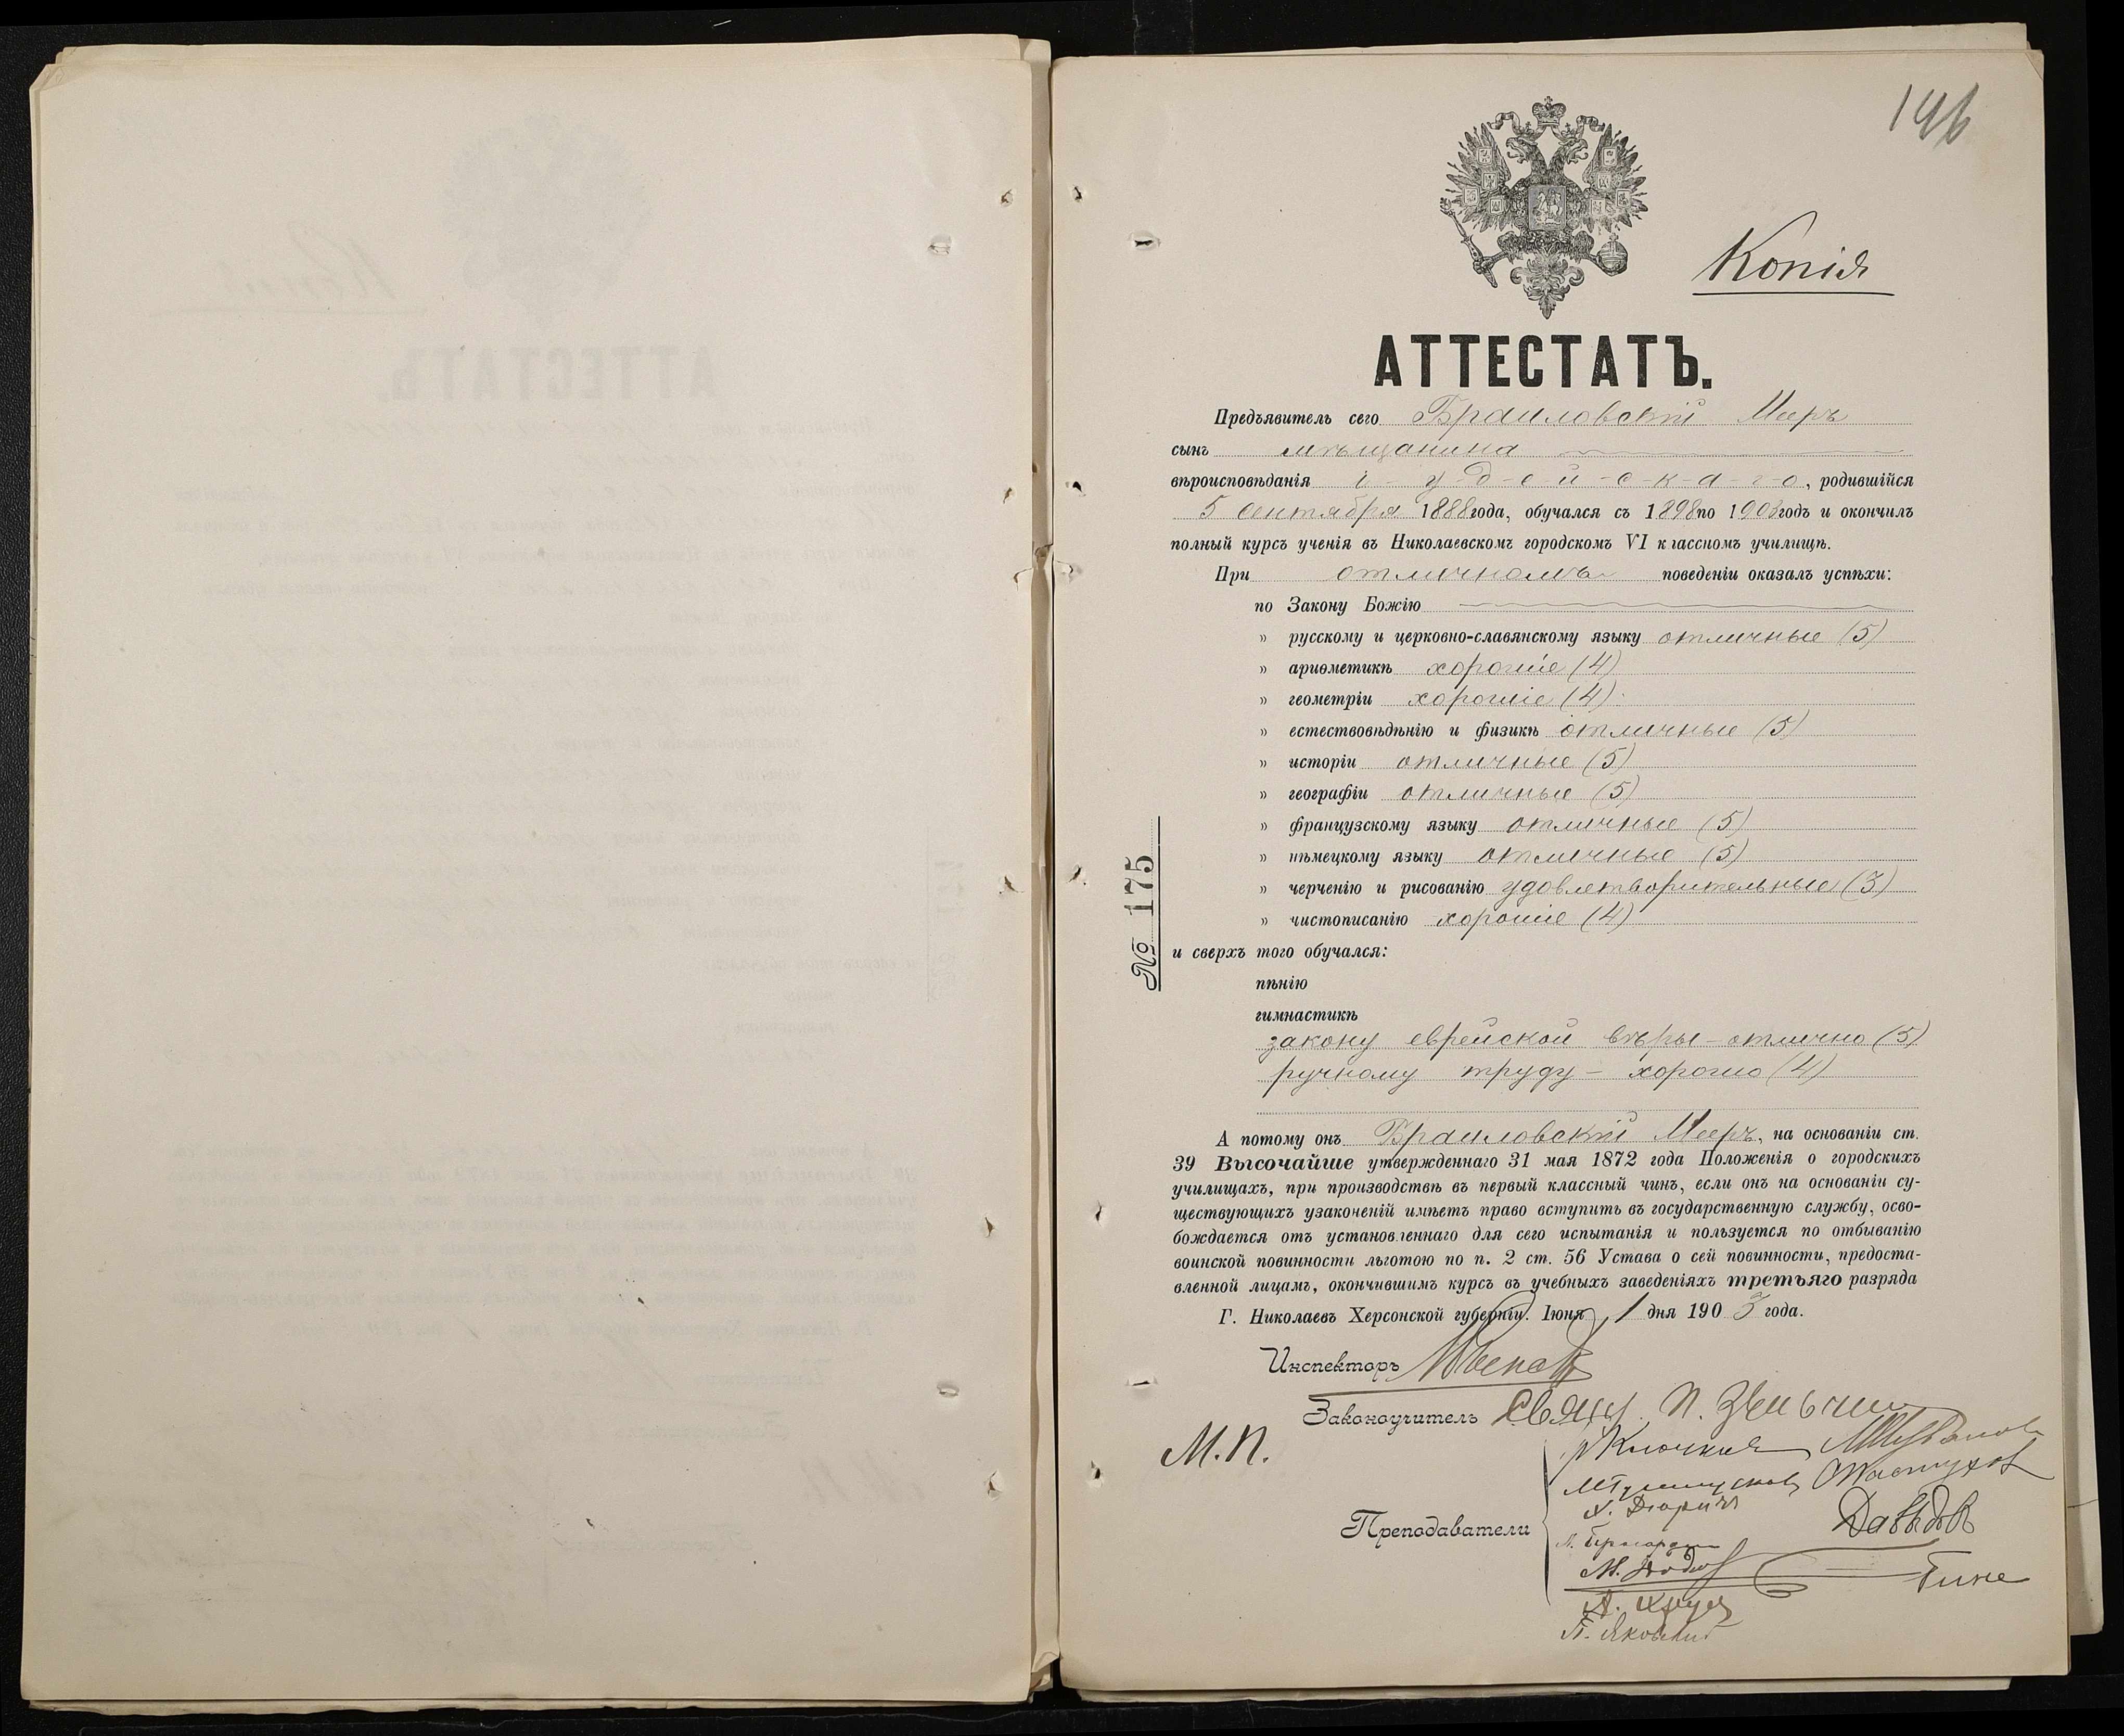 146
Копія
АТТЕСТАТЪ.
Предъявитель сего Браиловскій Меръ
сынъ мѣщанина
вѣроисповѣданія і-у-д-е-й-с-к-а-г-о, родившійся
5 Сентября 1888 года, обучался съ 1898 по 1903 годъ и окончилъ
полный курсъ ученія въ Николаевскомъ городскомъ VI классномъ училищѣ.
При отличномъ поведеніи оказалъ успѣхи:
по Закону Божію
» русскому и церковно-славянскому языку отличные (5)
» ариѳметикѣ хорошіе (4)
» геометріи хорошіе (4)
» естествовѣдѣнію и физикѣ отличные (5)
» исторіи отличные (5)
» географіи отличные (5)
» французскому языку отличные (5)
» нѣмецкому языку отличные (5)
» черченію и рисованію удовлетворительные (3)
» чистописанію хорошіе (4)
№ 175
и сверхъ того обучался:
пѣнію
гимнастикѣ
закону еврейской вѣры - отлично (5)
ручному труду - хорошо (4)
А потому онъ Браиловскій Меръ, на основаніи ст.
39 Высочайше утвержденнаго 31 мая 1872 года Положенія о городскихъ
училищахъ, при производствѣ въ первый классный чинъ, если онъ на основаніи су-
ществующихъ узаконеній имѣетъ право вступить въ государственную службу, осво-
бождается отъ установленнаго для сего испытанія и пользуется по отбыванію
воинской повинности льготою по п. 2 ст. 56 Устава о сей повинности, предоста-
вленной лицамъ, окончившимъ курсъ въ учебныхъ заведеніяхъ третьяго разряда
Г. Николаевъ Херсонской губерніи. Іюня 1 дня 1903 года.
Инспекторъ
Законоучитель Свящ. П.
М.П.
Преподаватели
Давыдов
Гине